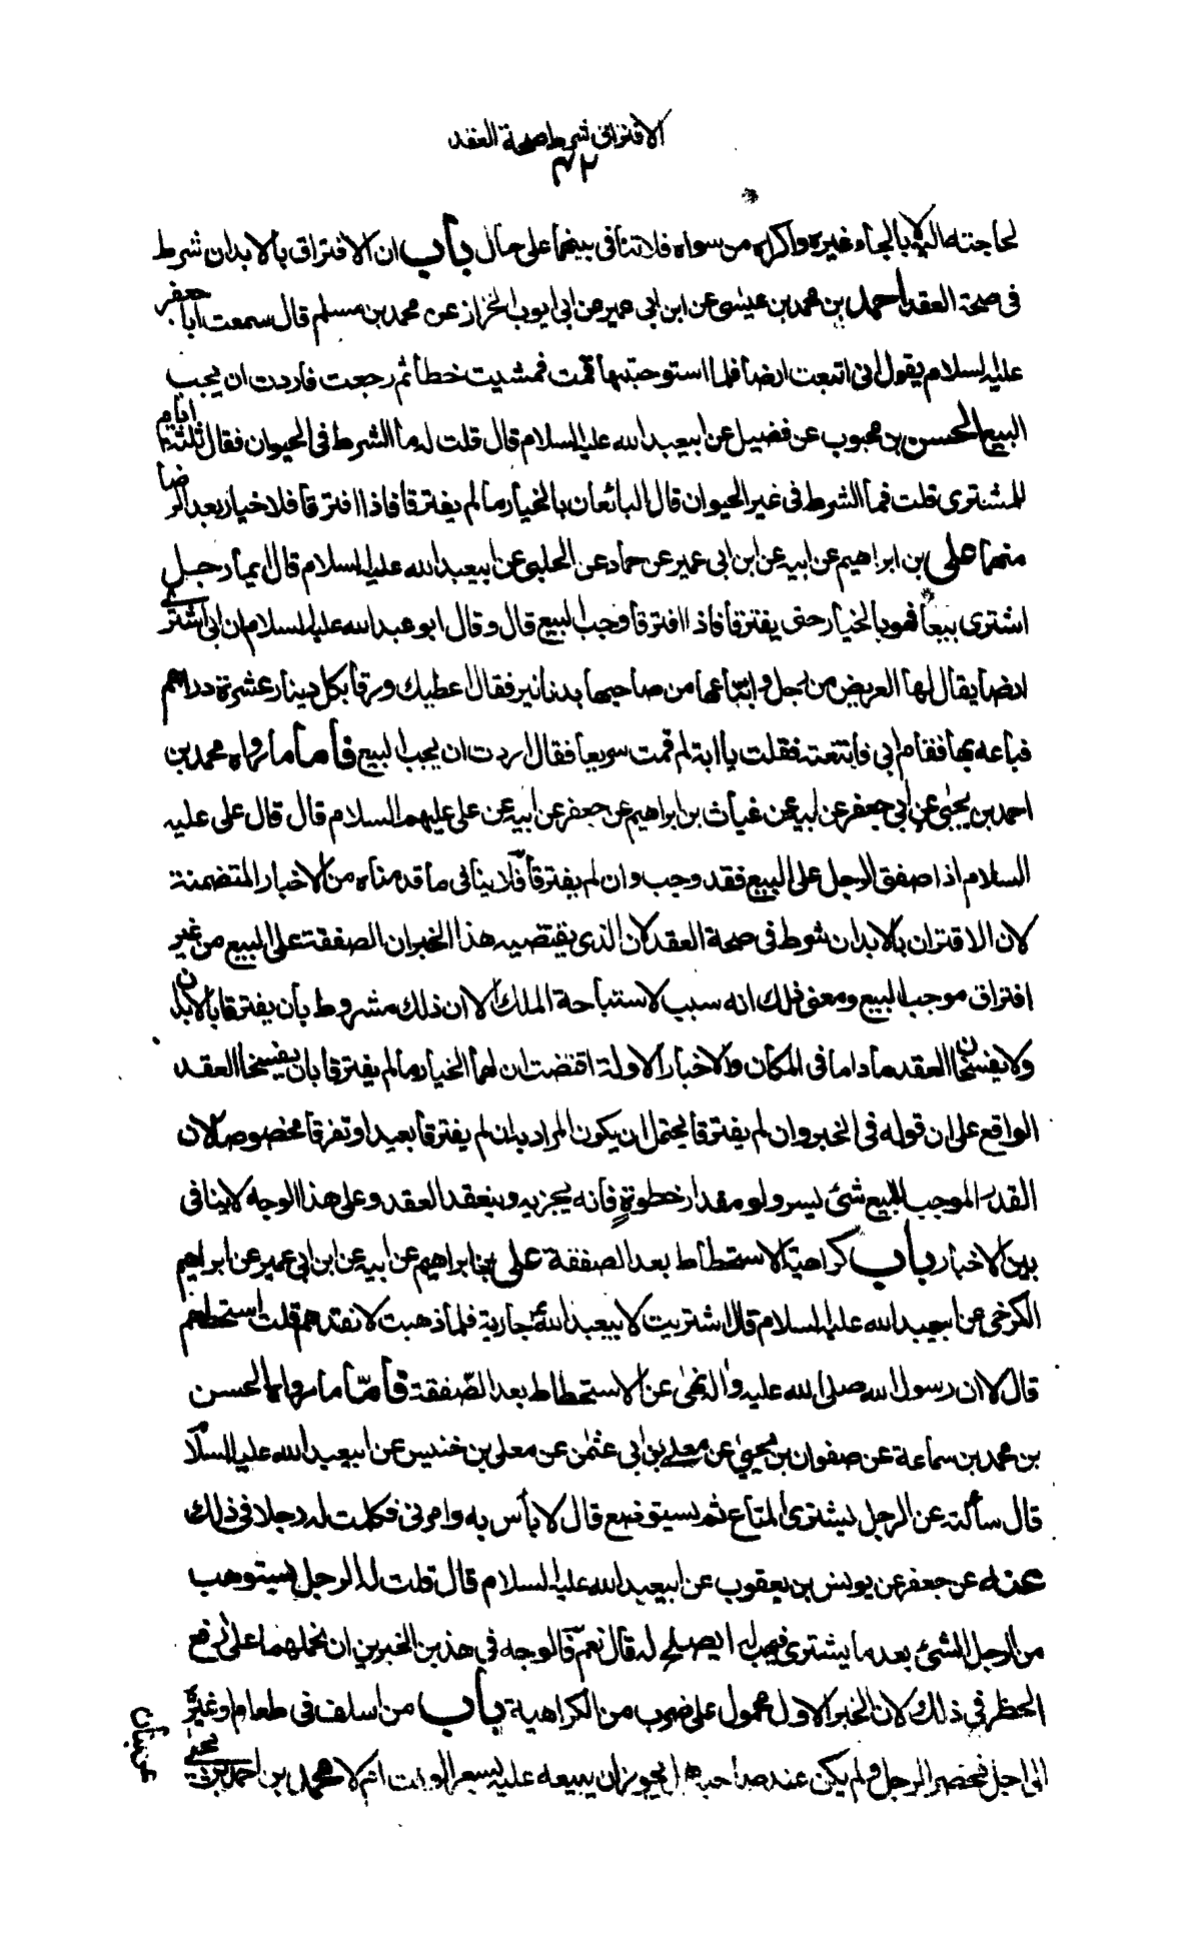 الافتراق شرط صحة العقد
٤٢
لحاجته اليه لا بالجاء غيره واكراه من سواه فلا تنافى بينهما على حال باب ان الافتراق بالابدان شرط
فى صحة العقد احمد بن محمد بن عيسى عن ابن ابى عمير عن ابى ايوب الخزاز عن محمد بن مسلم قال سمعت ابا جعفر
عليه السلام يقول انى ابتعت ارضا فلما استوجبتها قمت فمشيت خطأ ثم رجعت فاردت ان يجب
البيع الحسن بن محبوب عن فضيل عن ابيعبد الله عليه السلام قال قلت له ما الشرط فى الحيوان فقال ثلثة ايام
للمشترى قلت فما الشرط فى غير الحيوان قال البائعان بالخيار ما لم يفترقا فاذا افترقا فلا خيار بعد الرضا
منهما على بن ابراهيم عن ابيه عن ابن ابى عمير عن حماد عن الحلبى عن ابيعبد الله عليه السلام قال ايما رجل
اشترى بيعا فهو بالخيار حتى يفترقا فاذا افترقا وجب البيع قال وقال ابو عبد الله عليه السلام ان ابى اشترى
ارضا يقال لها العريض من رجل وابتاعها من صاحبها بدنانير فقال اعطيك ورقا بكل دينار عشرة دراهم
فباعه بها فقام ابى فاتبعته فقلت يا ابة لم قمت سريعا فقال اردت ان يجب البيع فأما ما رواه محمد بن
احمد بن يحيى عن ابى جعفر عن ابيه عن غياث بن ابراهيم عن جعفر عن ابيه عن على عليهم السلام قال قال على عليه
السلام اذا صفق الرجل على البيع فقد وجب وان لم يفترقا فلا ينافى ما قدمناه من الاخبار المتضمنة
لان الافتراق بالابدان شرط فى صحة العقد لان الذى يقتضيه هذا الخبر ان الصفقة على البيع من غير
افتراق موجب البيع ومعنى ذلك انه سبب لاستباحة الملك الا ان ذلك مشروط بأن يفترقا بالابدان
ولا يفسخان العقد ما داما فى المكان والاخبار الاولة اقتضت ان لهما الخيار ما لم يفترقا بان يفسخا العقد
الواقع على ان قوله فى الخبر وان لم يفترقا يحتمل ان يكون المراد به ان لم يفترقا بعيدا او تفرقا مخصوصا لان
القدر الموجب للبيع شئ يسير ولو مقدار خطوة فأنه يجزيه وينعقد العقد وعلى هذا الوجه لا ينافى
بين الاخبار باب كراهية الاستحطاط بعد الصفقة على بن ابراهيم عن ابيه عن ابن ابى عمير عن ابراهيم
الكرخى عن ابيعبد الله عليه السلام قال اشتريت لابيعبد الله جارية فلما ذهبت لانقدهم قلت استحطهم
قال لا ان رسول الله صلى الله عليه واله نهى عن الاستحطاط بعد الصفقة فأما ما رواه الحسن
بن محمد بن سماعة عن صفوان بن يحيى عن معلى بن ابى عثمن عن معلى بن خنيس عن ابيعبد الله عليه السلام
قال سألته عن الرجل يشترى المتاع ثم يستوضع قال لا بأس به وامرنى فكلمت له رجلا فى ذلك
عنه عن جعفر عن يونس بن يعقوب عن ابيعبد الله عليه السلام قال قلت له الرجل يستوهب
من الرجل الشئ بعد ما يشترى فيهب له ايصلح له قال نعم فالوجه فى هذين الخبرين ان نحملهما على رفع
الحظر فى ذلك لان الخبر الاول محمول على ضرب من الكراهية باب من اسلف فى طعام او غيره
الى اجل فحضر الرجل ولم يكن عند صاحبه هل يجوز ان يبيعه عليه بسعر الوقت ام لا محمد بن احمد بن يحيى
عن بنان